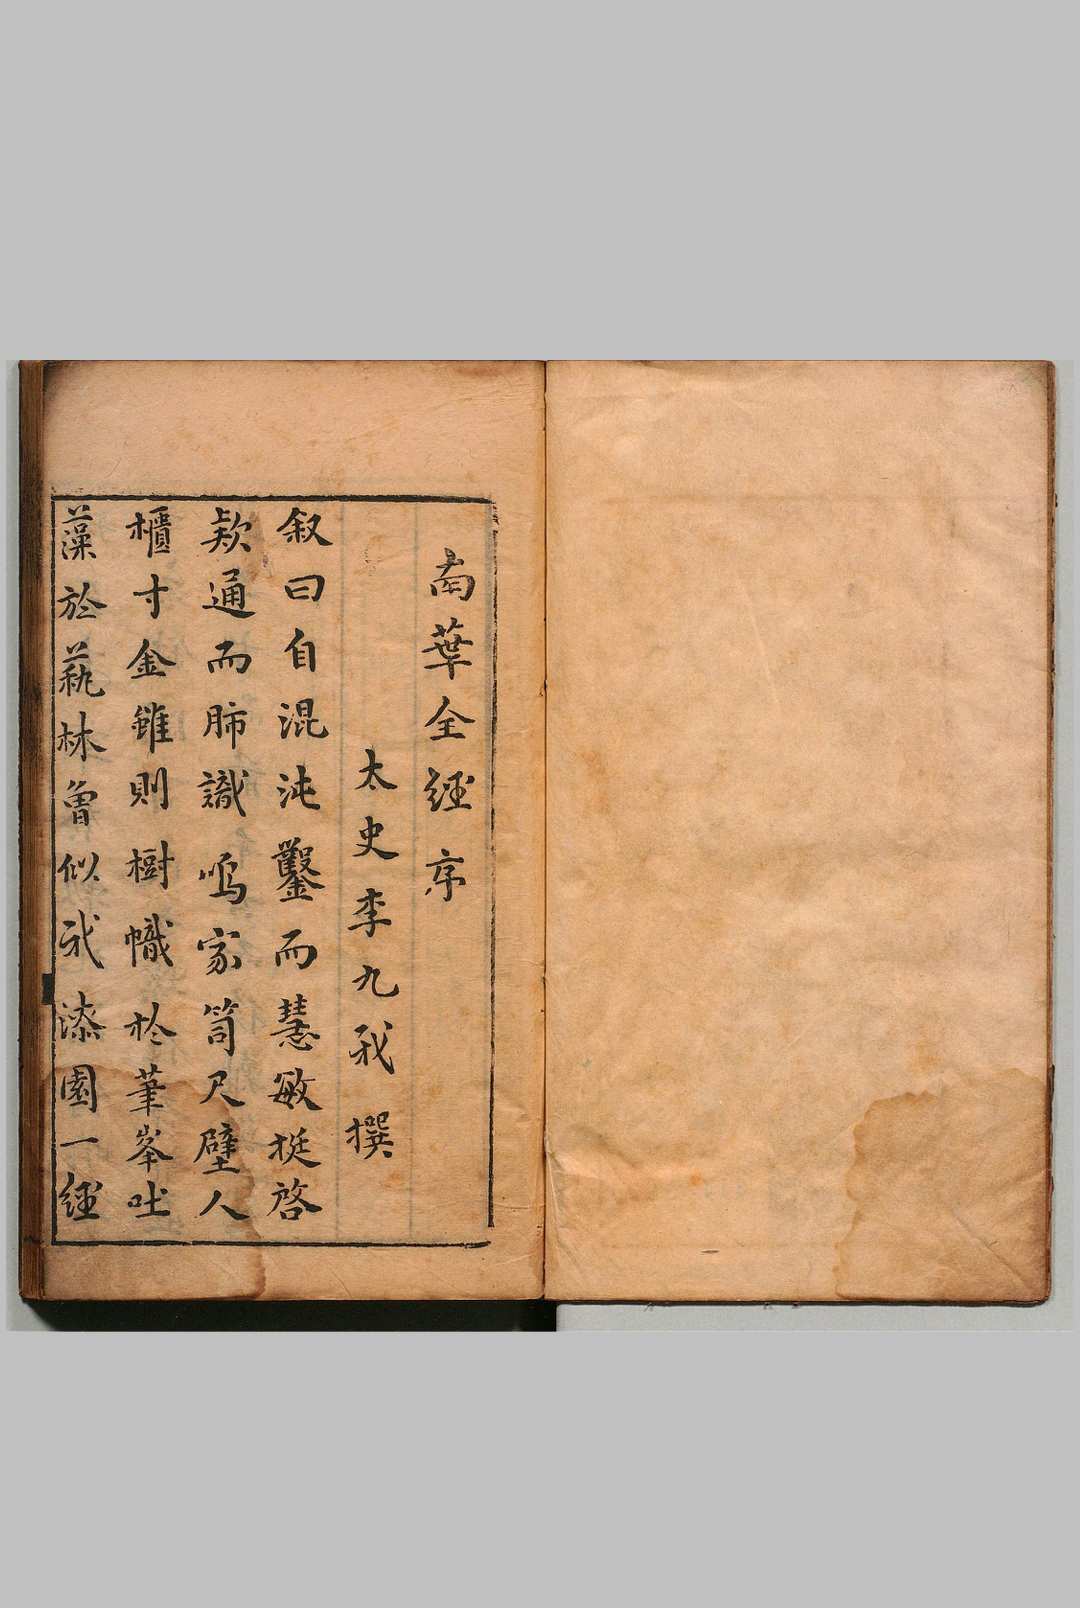 南華全經序
太史李九我撰
叙曰自混沌鑿而慧敏挺啓
欵通而肺識鳴家笥尺璧人
櫃寸金雖則樹幟於筆峯吐
藻於蓺林曾似我漆園一經